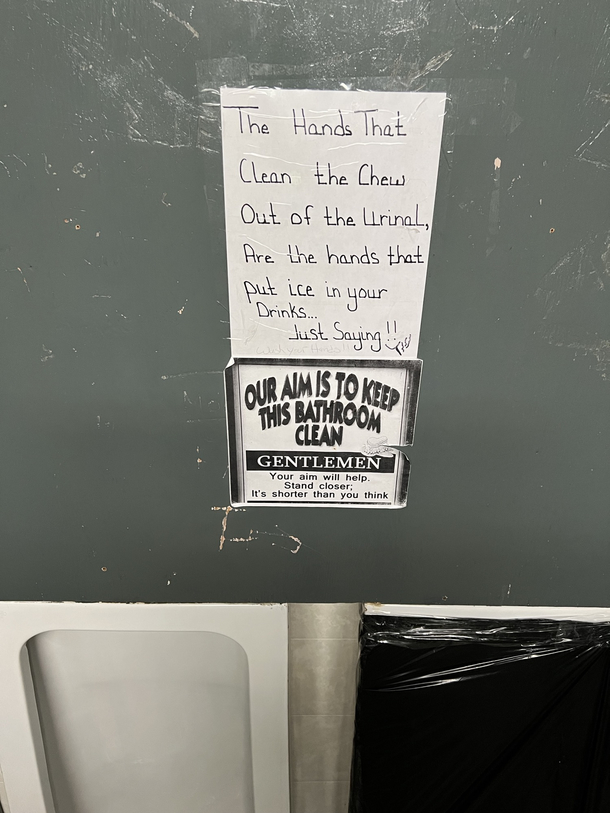 The Hands That
Clean the Chew
Out of the Urinal,
Are the hands that
put ice in your
Drinks...
Just Saying!!
OUR AIM IS TO KEEP
THIS BATHROOM
CLEAN
GENTLEMEN
Your aim will help.
Stand closer;
It's shorter than you think